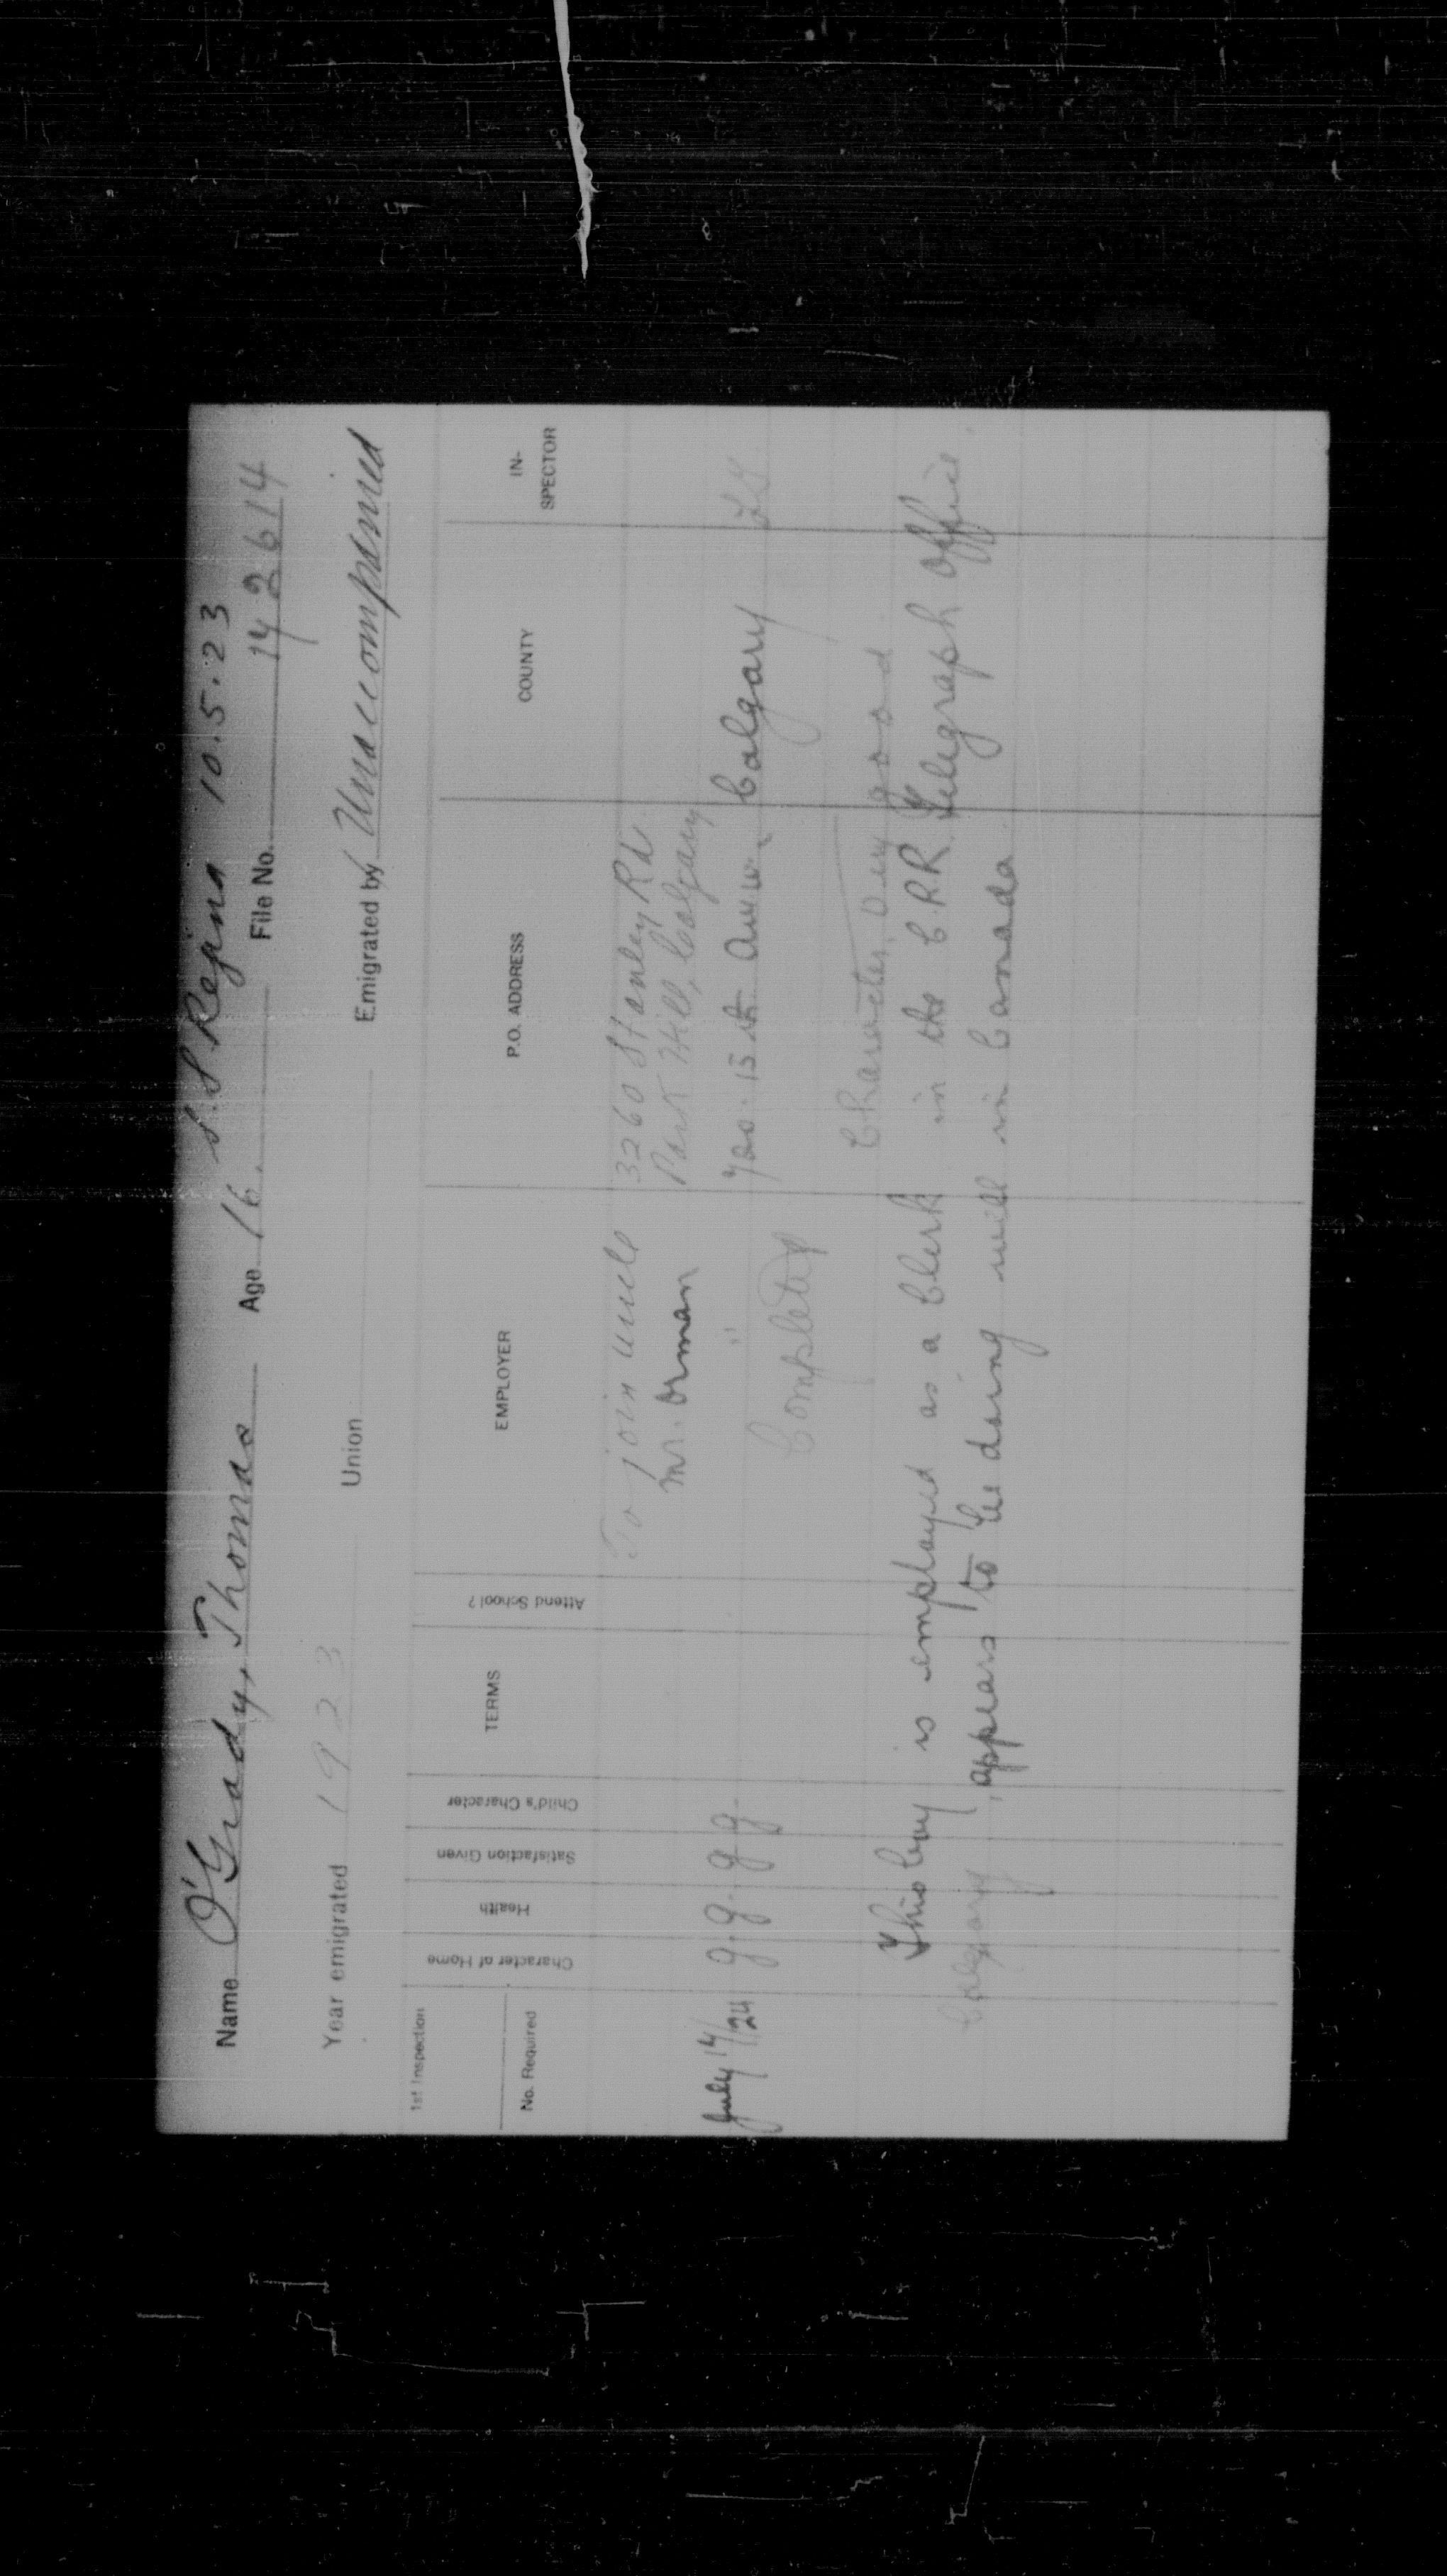 S.S. Regina 10.5.23
Name O'Grady, Thomas Age 16. File No. 142614
Year emigrated 1923 Union Emigrated by Unaccompanied
1st Inspection
No. Required
Character of Home
Health
Satisfaction Given
Child's Character
TERMS
Attend School?
EMPLOYER
P.O. ADDRESS
COUNTY
IN-
SPECTOR
To join uncle 3260 Stanley Rd.
Mr. Orman Park Hill, Calgary
July 14/24 g. g. g g " 720. 15th Ave W. Calgary
Completed
Character, very good
This boy is employed as a Clerk in the C.P.R. Telegraph Office.
Calgary, appears to be doing well in Canada.